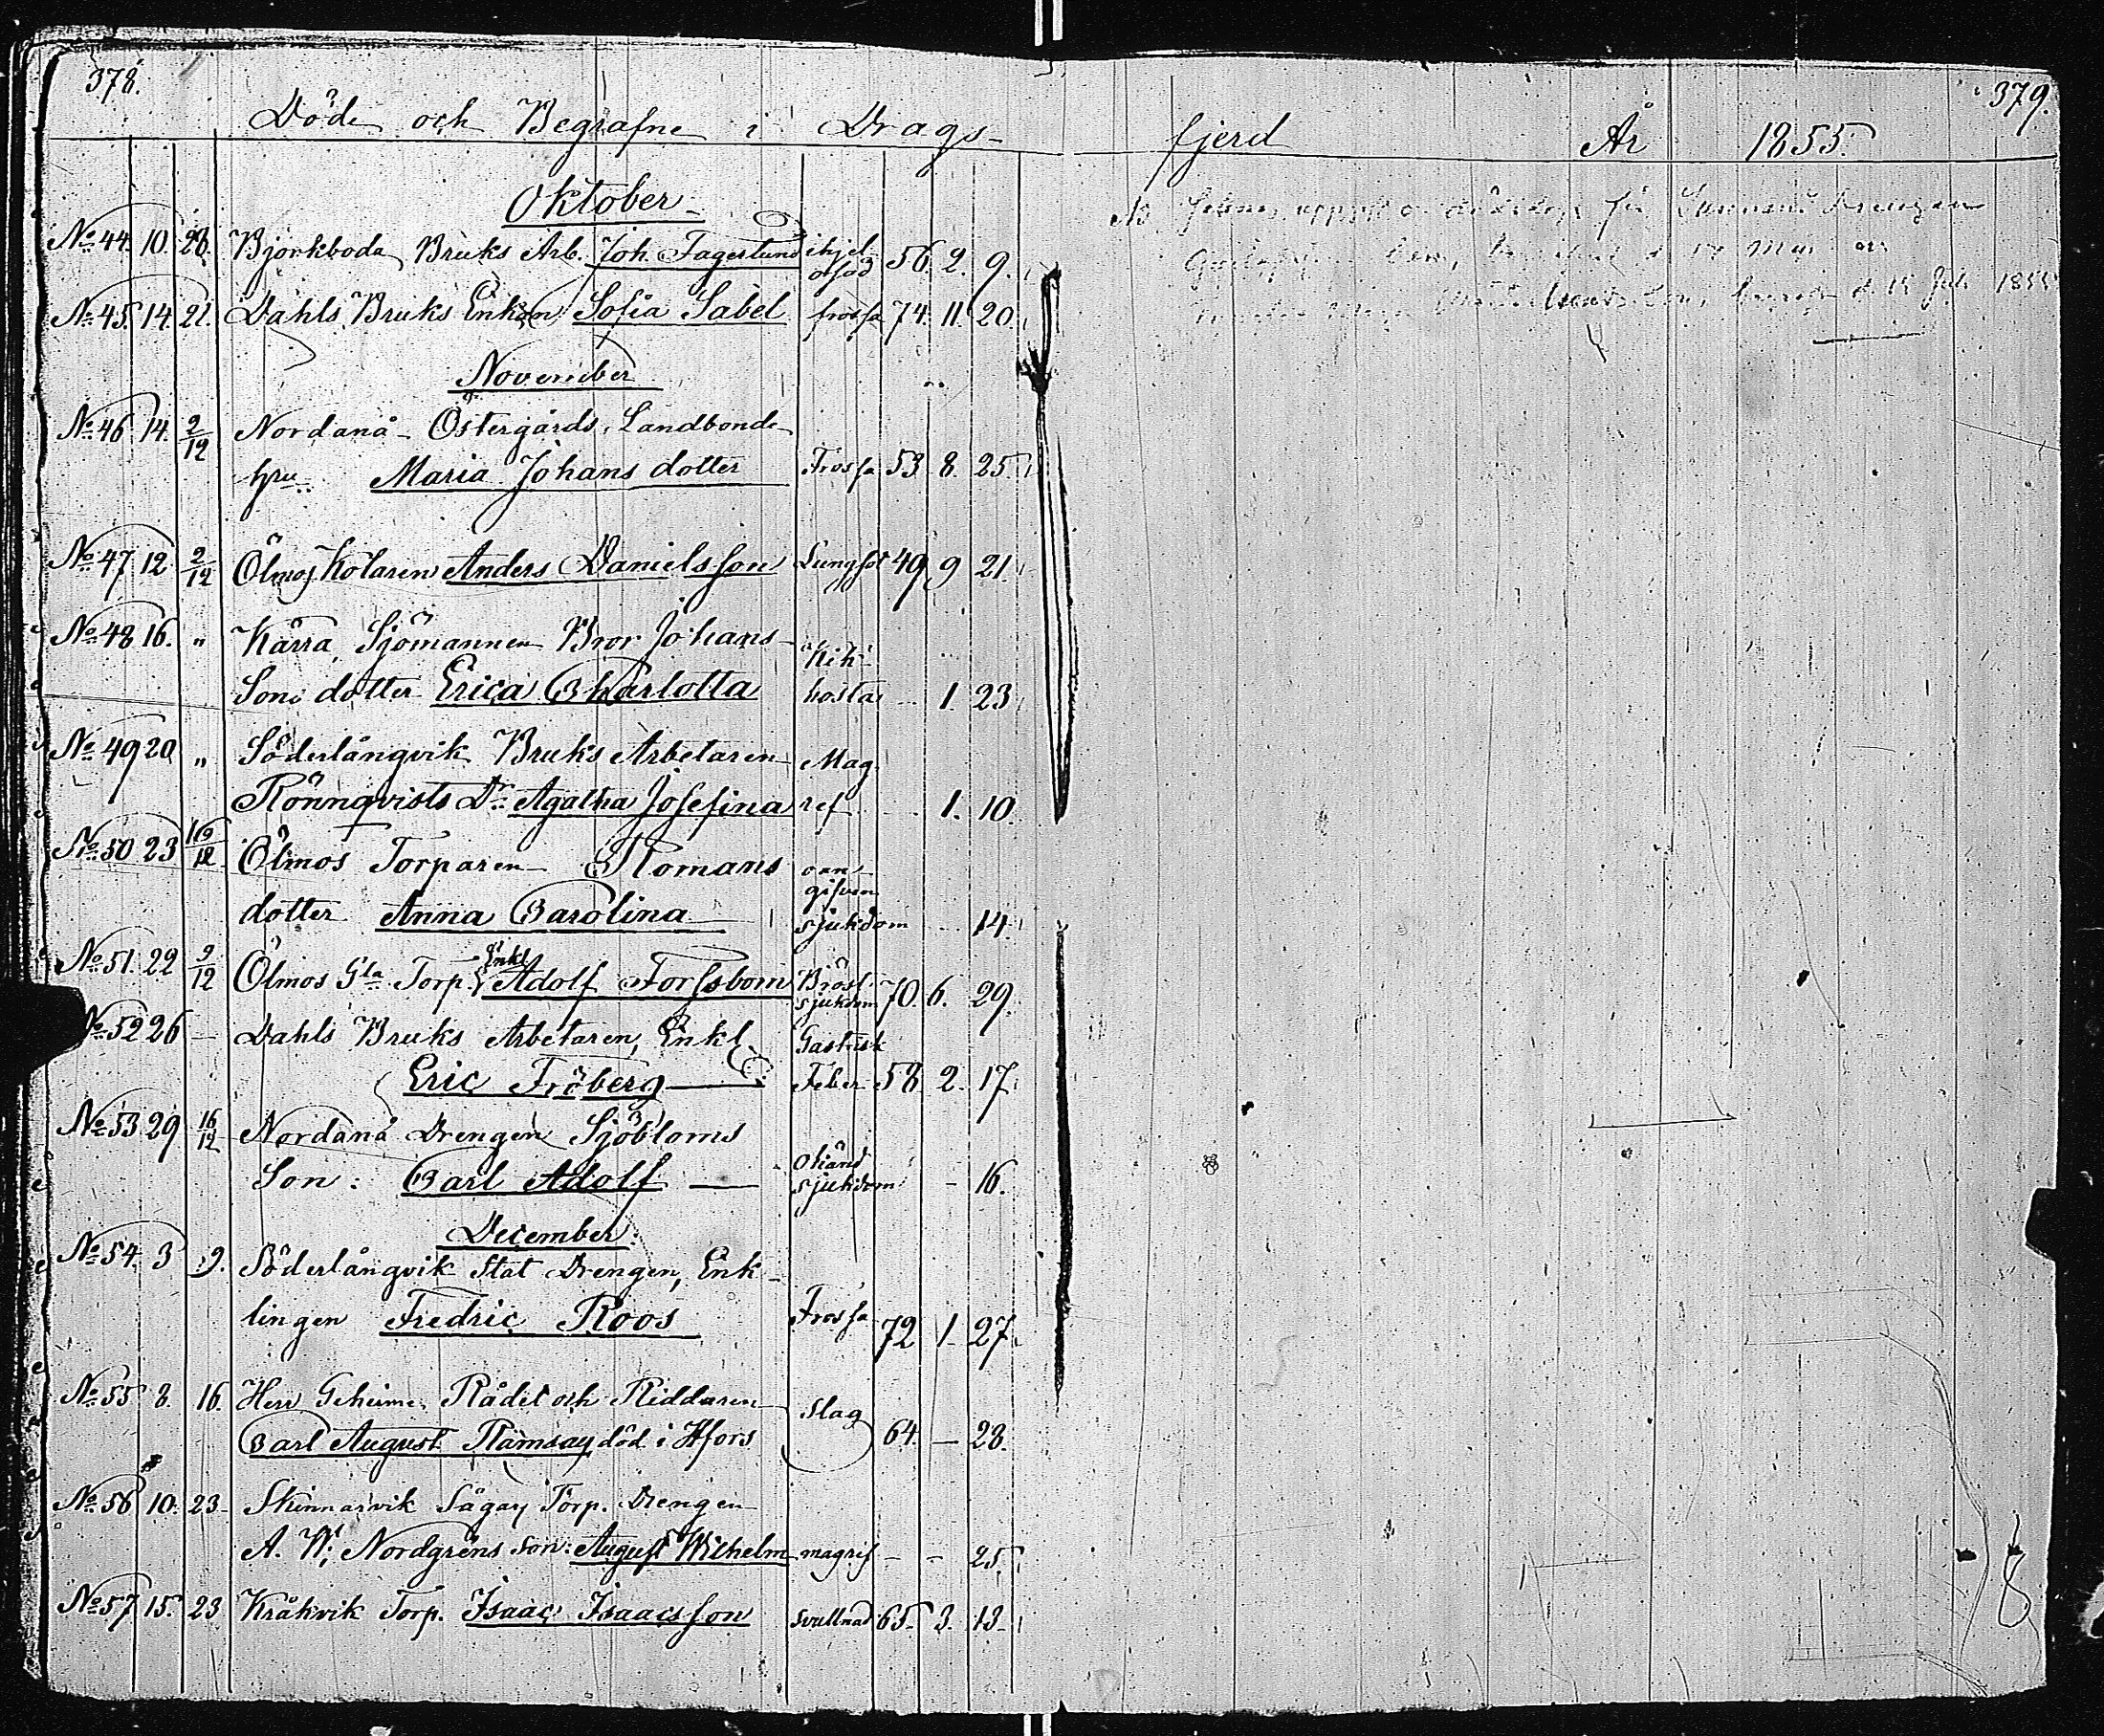 378.
379.
Döde och Begrafne i Dragsfjerd År 1855.
Oktober
No 44. 10. 28. Björkboda Bruks Arb. Joh. Fagerlund ihjel- 56. 2. 9.
No 45. 14. 21. Dahls Bruks Enkan Sofia Sabel frossa 74. 11. 20.
November
No 46. 14. 2/12 Nordanå Östergårds Landbonde
hru Maria Johans dotter Frossa 53 8. 25.
No 47 12. 2/12 Ölmos Kolaren Anders Danielsson Lungsot 49 9 21.
No 48 16. " Kärra Sjömannen Bror Johans-
Sons dotter Erica Charlotta Kik-hosta 1. 23.
No 49 20 " Söderlångvik Bruks Arbetaren Mag-
Rönnqvists Dr Agatha Josefina ref 1. 10.
No 50 23 16/12 Ölmos Torparen Romans oan-
gifven
dotter Anna Carolina sjukdom 14.
No 51. 22 9/12 Ölmos Gla Torp. Enkl. Adolf Forssbom Bröst-sjukdom 70. 6. 29.
No 52 26 — Dahls Bruks Arbetaren, Enkl. Gastrisk
Eric Fröberg Feber 58. 2. 17.
No 53 29 16/12 Nordanå Drengen Sjöbloms
Son: Carl Adolf — Okänd sjukdom - 16.
December.
No 54. 3 9. Söderlångvik Stat Drengen, Enk-
lingen Fredric Roos Frossa 72 1 27.
No 55 8. 16. Herr Geheime Rådet och Riddaren Slag
Carl August Ramsay död i Hfors 64. — 28.
No 56 10. 23. Skinnarvik Sågary Torp. Drengen
A. W. Nordgrens son: August Wilhelm magref - - 25.
No 57 15. 23 Kråkvik Torp. Isaac Isaacsson svullnad 65. 3. 13.